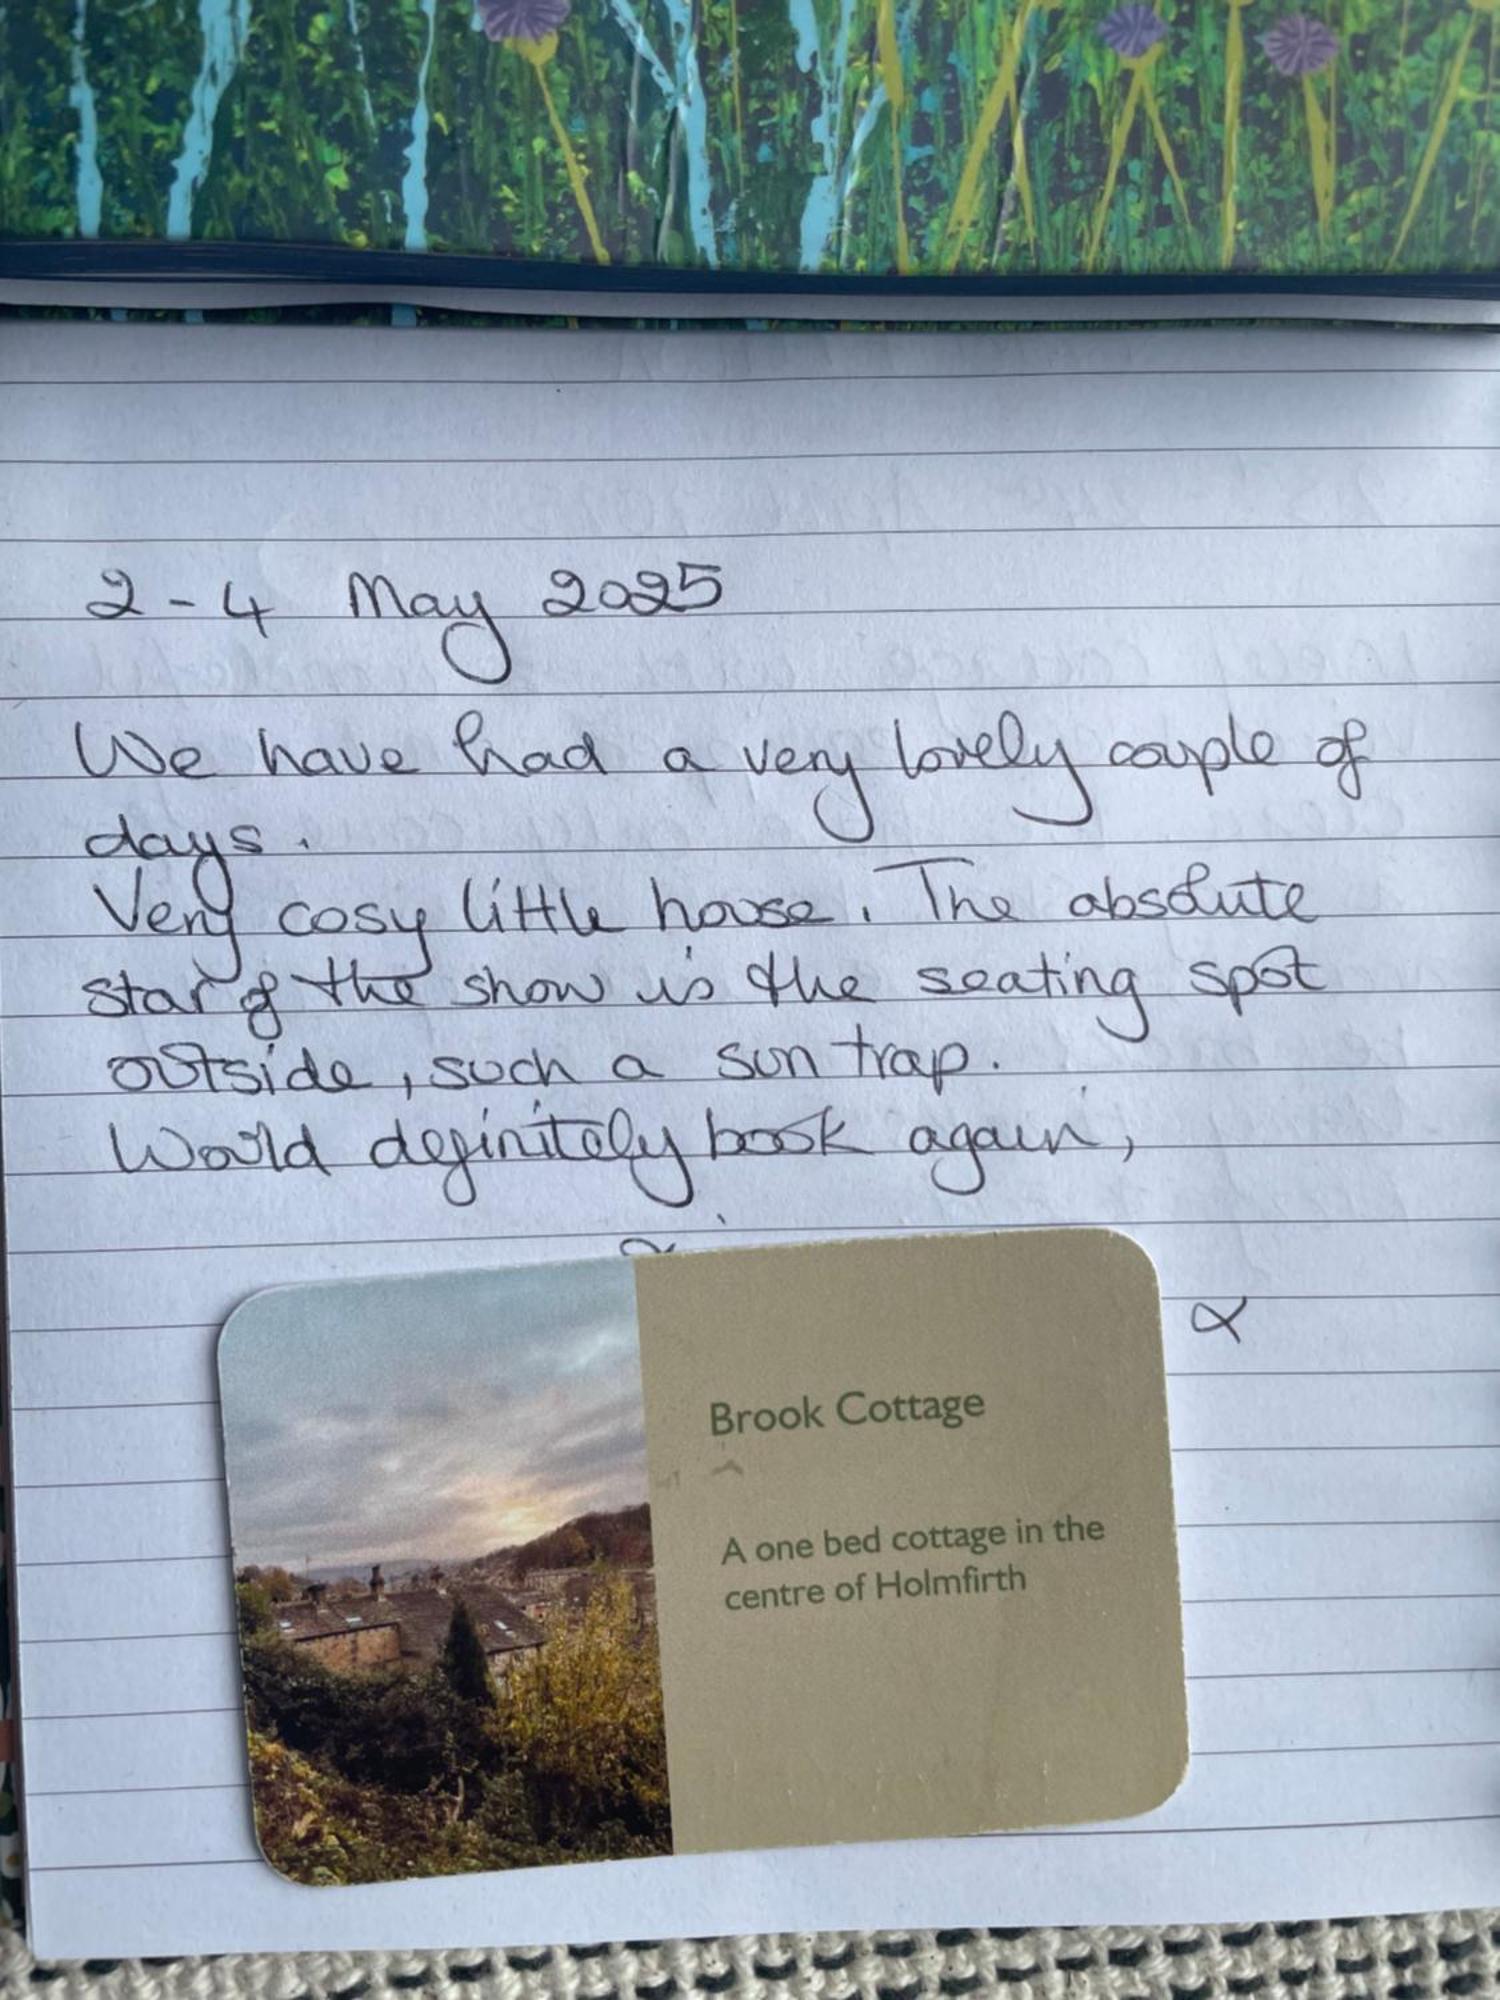 2-4 May 2025
We have had a very lovely couple of
days.
Very cosy little house. The absolute
star of the show is the seating spot
outside, such a sun trap.
Would definitely book again,
x
Brook Cottage
A one bed cottage in the
centre of Holmfirth